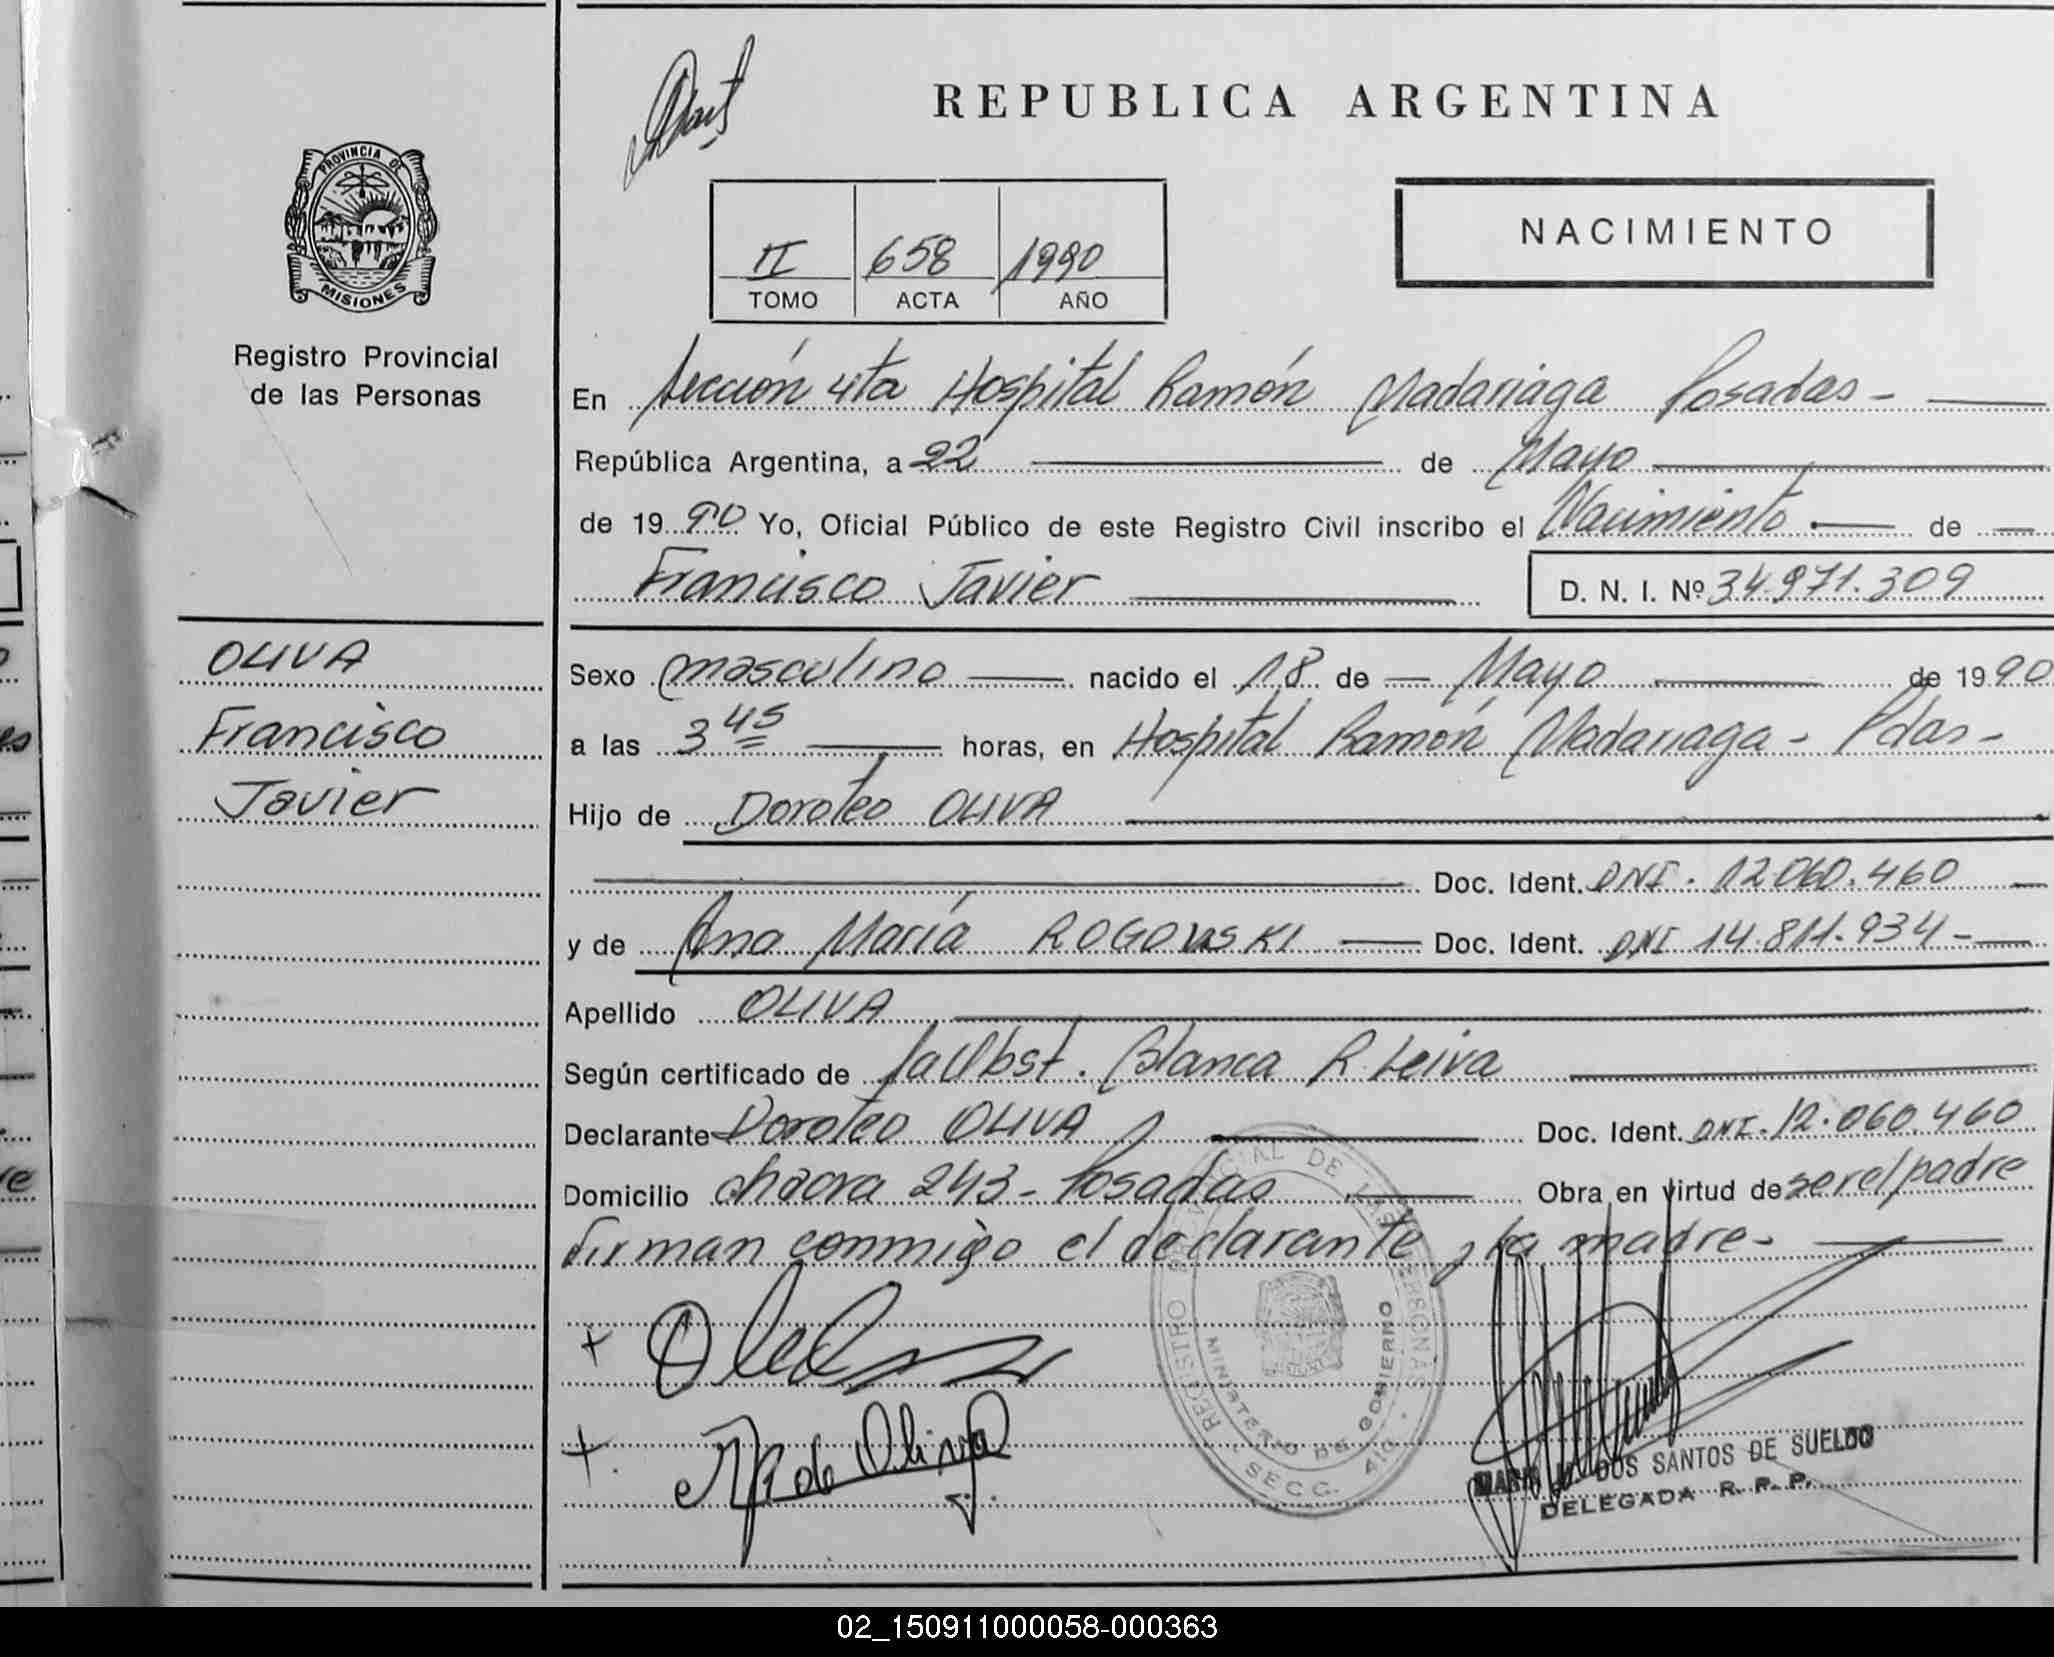 REPUBLICA ARGENTINA
PROVINCIA DE
MISIONES
Registro Provincial
de las Personas
NACIMIENTO
II 658 1990
TOMO ACTA AÑO
En Sección 4ta Hospital Ramón Madariaga Posadas -
República Argentina, a 22 de Mayo
de 1990 Yo, Oficial Público de este Registro Civil inscribo el Nacimiento de
Francisco Javier D. N. I. Nº 34.971.309
OLIVA
Francisco
Javier
Sexo masculino nacido el 18 de Mayo de 1990
a las 3 45 horas, en Hospital Ramón Madariaga - Pdas -
Hijo de Doroteo OLIVA
Doc. Ident. DNI. 12.060.460
y de Ana María ROGOWSKI Doc. Ident. DNI 14.811.934 -
Apellido OLIVA
Según certificado de la Obst. Blanca R. Leiva
Declarante Doroteo OLIVA Doc. Ident. DNI. 12.060.460
Domicilio chacra 243 - Posadas Obra en virtud de ser el padre
firman conmigo el declarante y la madre -
REGISTRO PROVINCIAL DE LAS PERSONAS
MINISTERIO DE GOBIERNO
SECC. 4ta.
+
+. de Oliva
DOS SANTOS DE SUELDO
DELEGADA R. P. P.
02_150911000058-000363